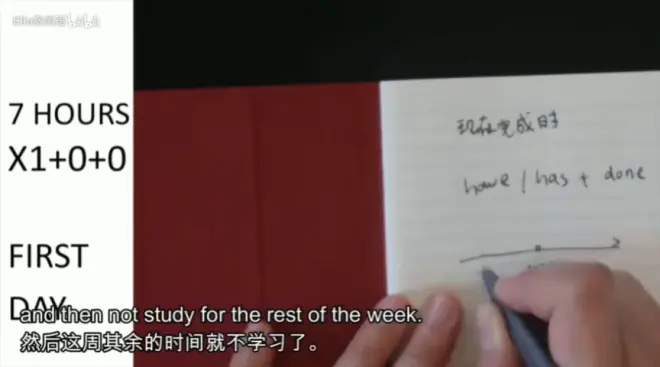 7 HOURS
X1+0+0
FIRST
DAY
现在完成时
have / has + done
and then not study for the rest of the week.
然后这周其余的时间就不学习了。